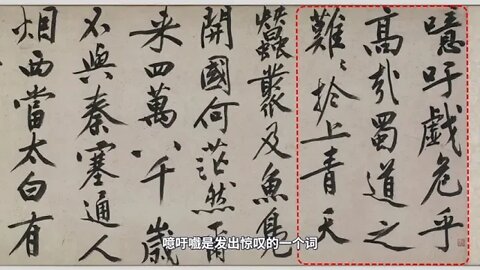 噫吁戲危乎
高哉蜀道之
難〻於上青天
蠶叢及魚鳧
開國何茫然爾
来四萬八千歲
不與秦塞通人
烟西當太白有
噫吁嚱是发出惊叹的一个词